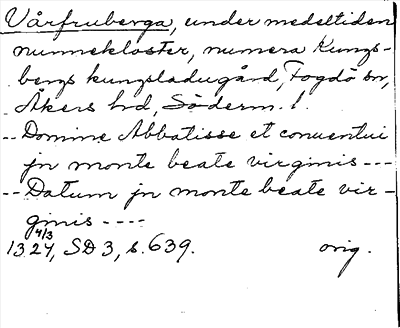 Vårfruberga, under medeltiden
nunnekloster, numera Kungs-
bergs kungsladugård, Fogdö sn,
Åkers hd, Söderm. l.
-- Domine Abbatisse et conuentui
jn monte beate virginis ---
-- Datum jn monte beate vir-
ginis ----
1327 4/3, SD 3, s. 639. orig.